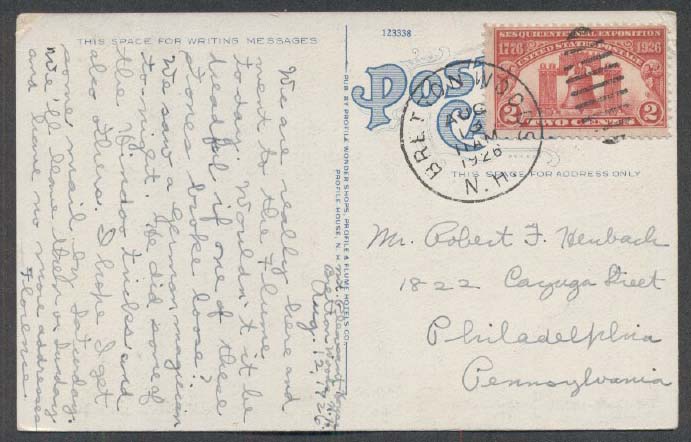 THIS SPACE FOR WRITING MESSAGES
Mt. Pleasant House
Bretton Woods, N.H.
Aug. 12, 1926
We are really here and
went to the Flume
today. Wouldn't it be
dreadful if one of these
stones broke loose?
We saw a german magician
to-night. He did some of
the Hindoo tricks and
also others. I hope I get
some mail by Saturday.
We'll leave then or Sunday
and have no more addresses
Florence.
PUB. BY PROFILE WONDER SHOPS, PROFILE & FLUME HOTELS CO.,
PROFILE HOUSE, N. H.
123338
POS
C
BRETTON WOODS
AUG
12
11 AM
1926
N.H.
SESQUICENTENNIAL EXPOSITION
1776 1926
UNITED STATES POSTAGE
2 TWO CENTS 2
THIS SPACE FOR ADDRESS ONLY
Mr. Robert F. Heubach
1822 Cayuga Street
Philadelphia
Pennsylvania